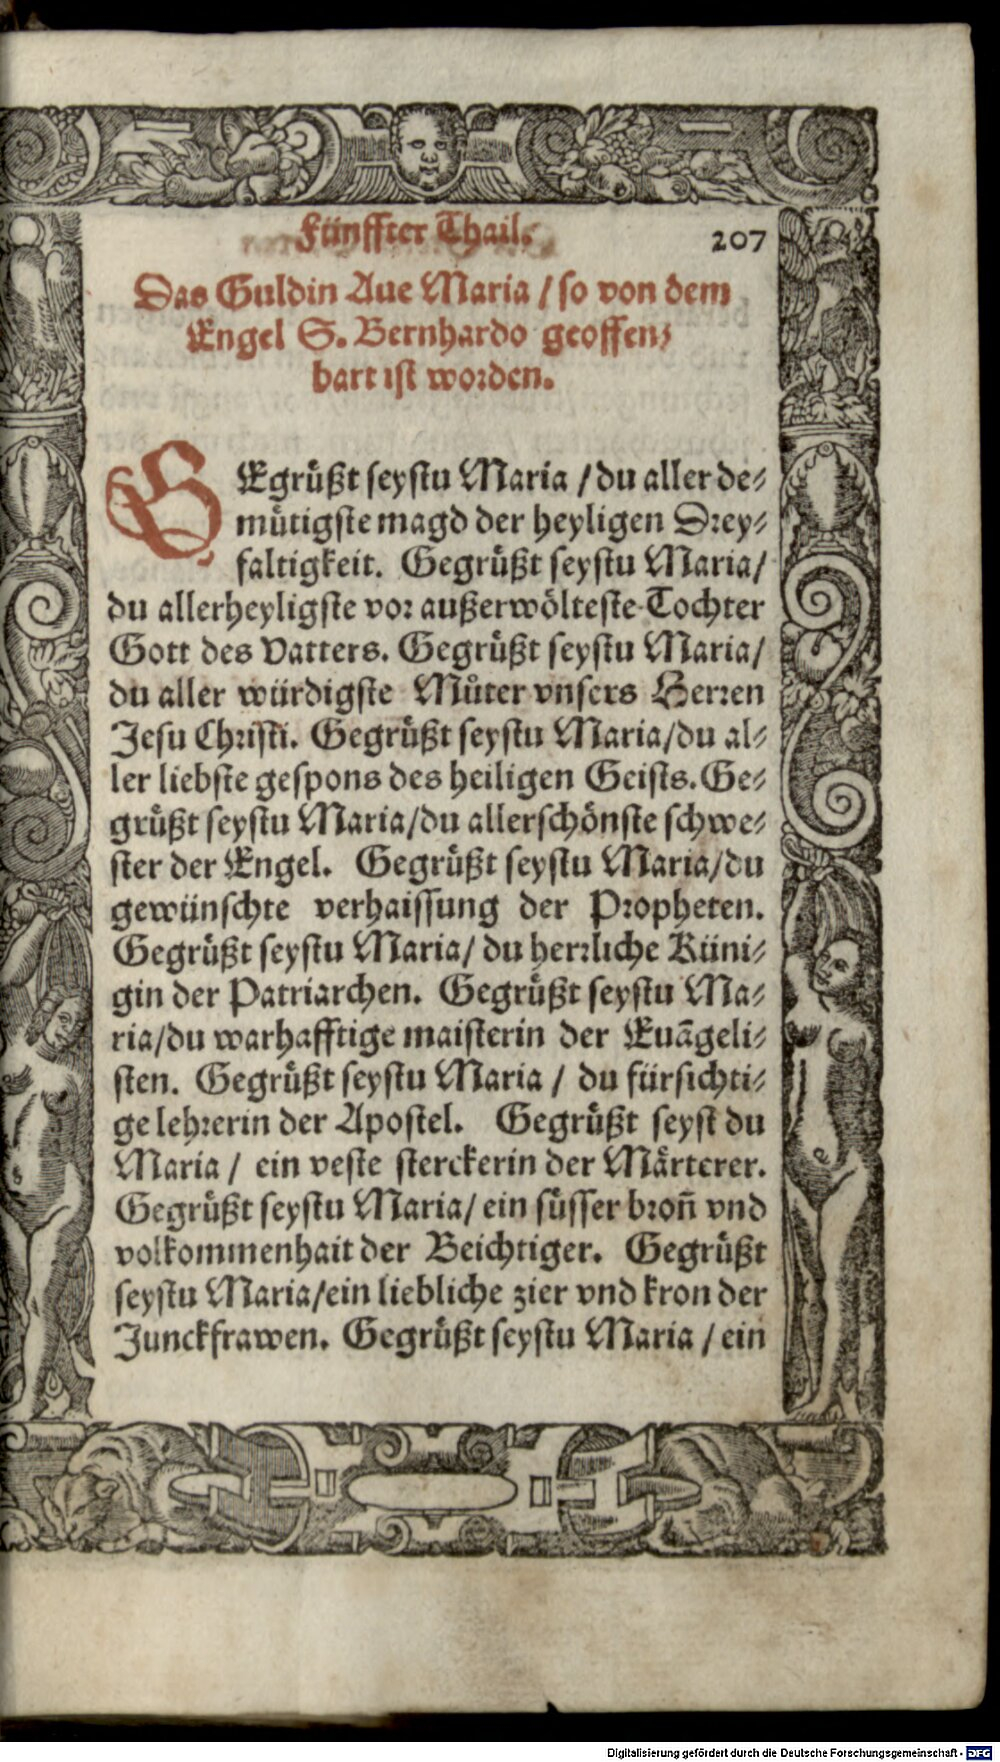 Fünffter Thail. 207
Das Guldin Aue Maria / so von dem
Engel S. Bernhardo geoffen⸗
bart ist worden.
GEgrüßt seystu Maria / du aller de⸗
mütigste magd der heyligen Drey⸗
faltigkeit. Gegrüßt seystu Maria/
du allerheyligste vor außerwölteste Tochter
Gott des Vatters. Gegrüßt seystu Maria/
du aller würdigste Můter vnsers Herren
Jesu Christi. Gegrüßt seystu Maria/du al⸗
ler liebste gespons des heiligen Geists. Ge⸗
grüßt seystu Maria/du allerschönste schwe⸗
ster der Engel. Gegrüßt seystu Maria/du
gewünschte verhaissung der Propheten.
Gegrüßt seystu Maria/ du herrliche Küni⸗
gin der Patriarchen. Gegrüßt seystu Ma⸗
ria/du warhafftige maisterin der Euāgeli⸗
sten. Gegrüßt seystu Maria / du fürsichti⸗
ge lehrerin der Apostel. Gegrüßt seyst du
Maria / ein veste sterckerin der Märterer.
Gegrüßt seystu Maria/ ein süsser broñ vnd
volkommenhait der Beichtiger. Gegrüßt
seystu Maria/ein liebliche zier vnd kron der
Junckfrawen. Gegrüßt seystu Maria / ein
Digitalisierung gefördert durch die Deutsche Forschungsgemeinschaft - DFG